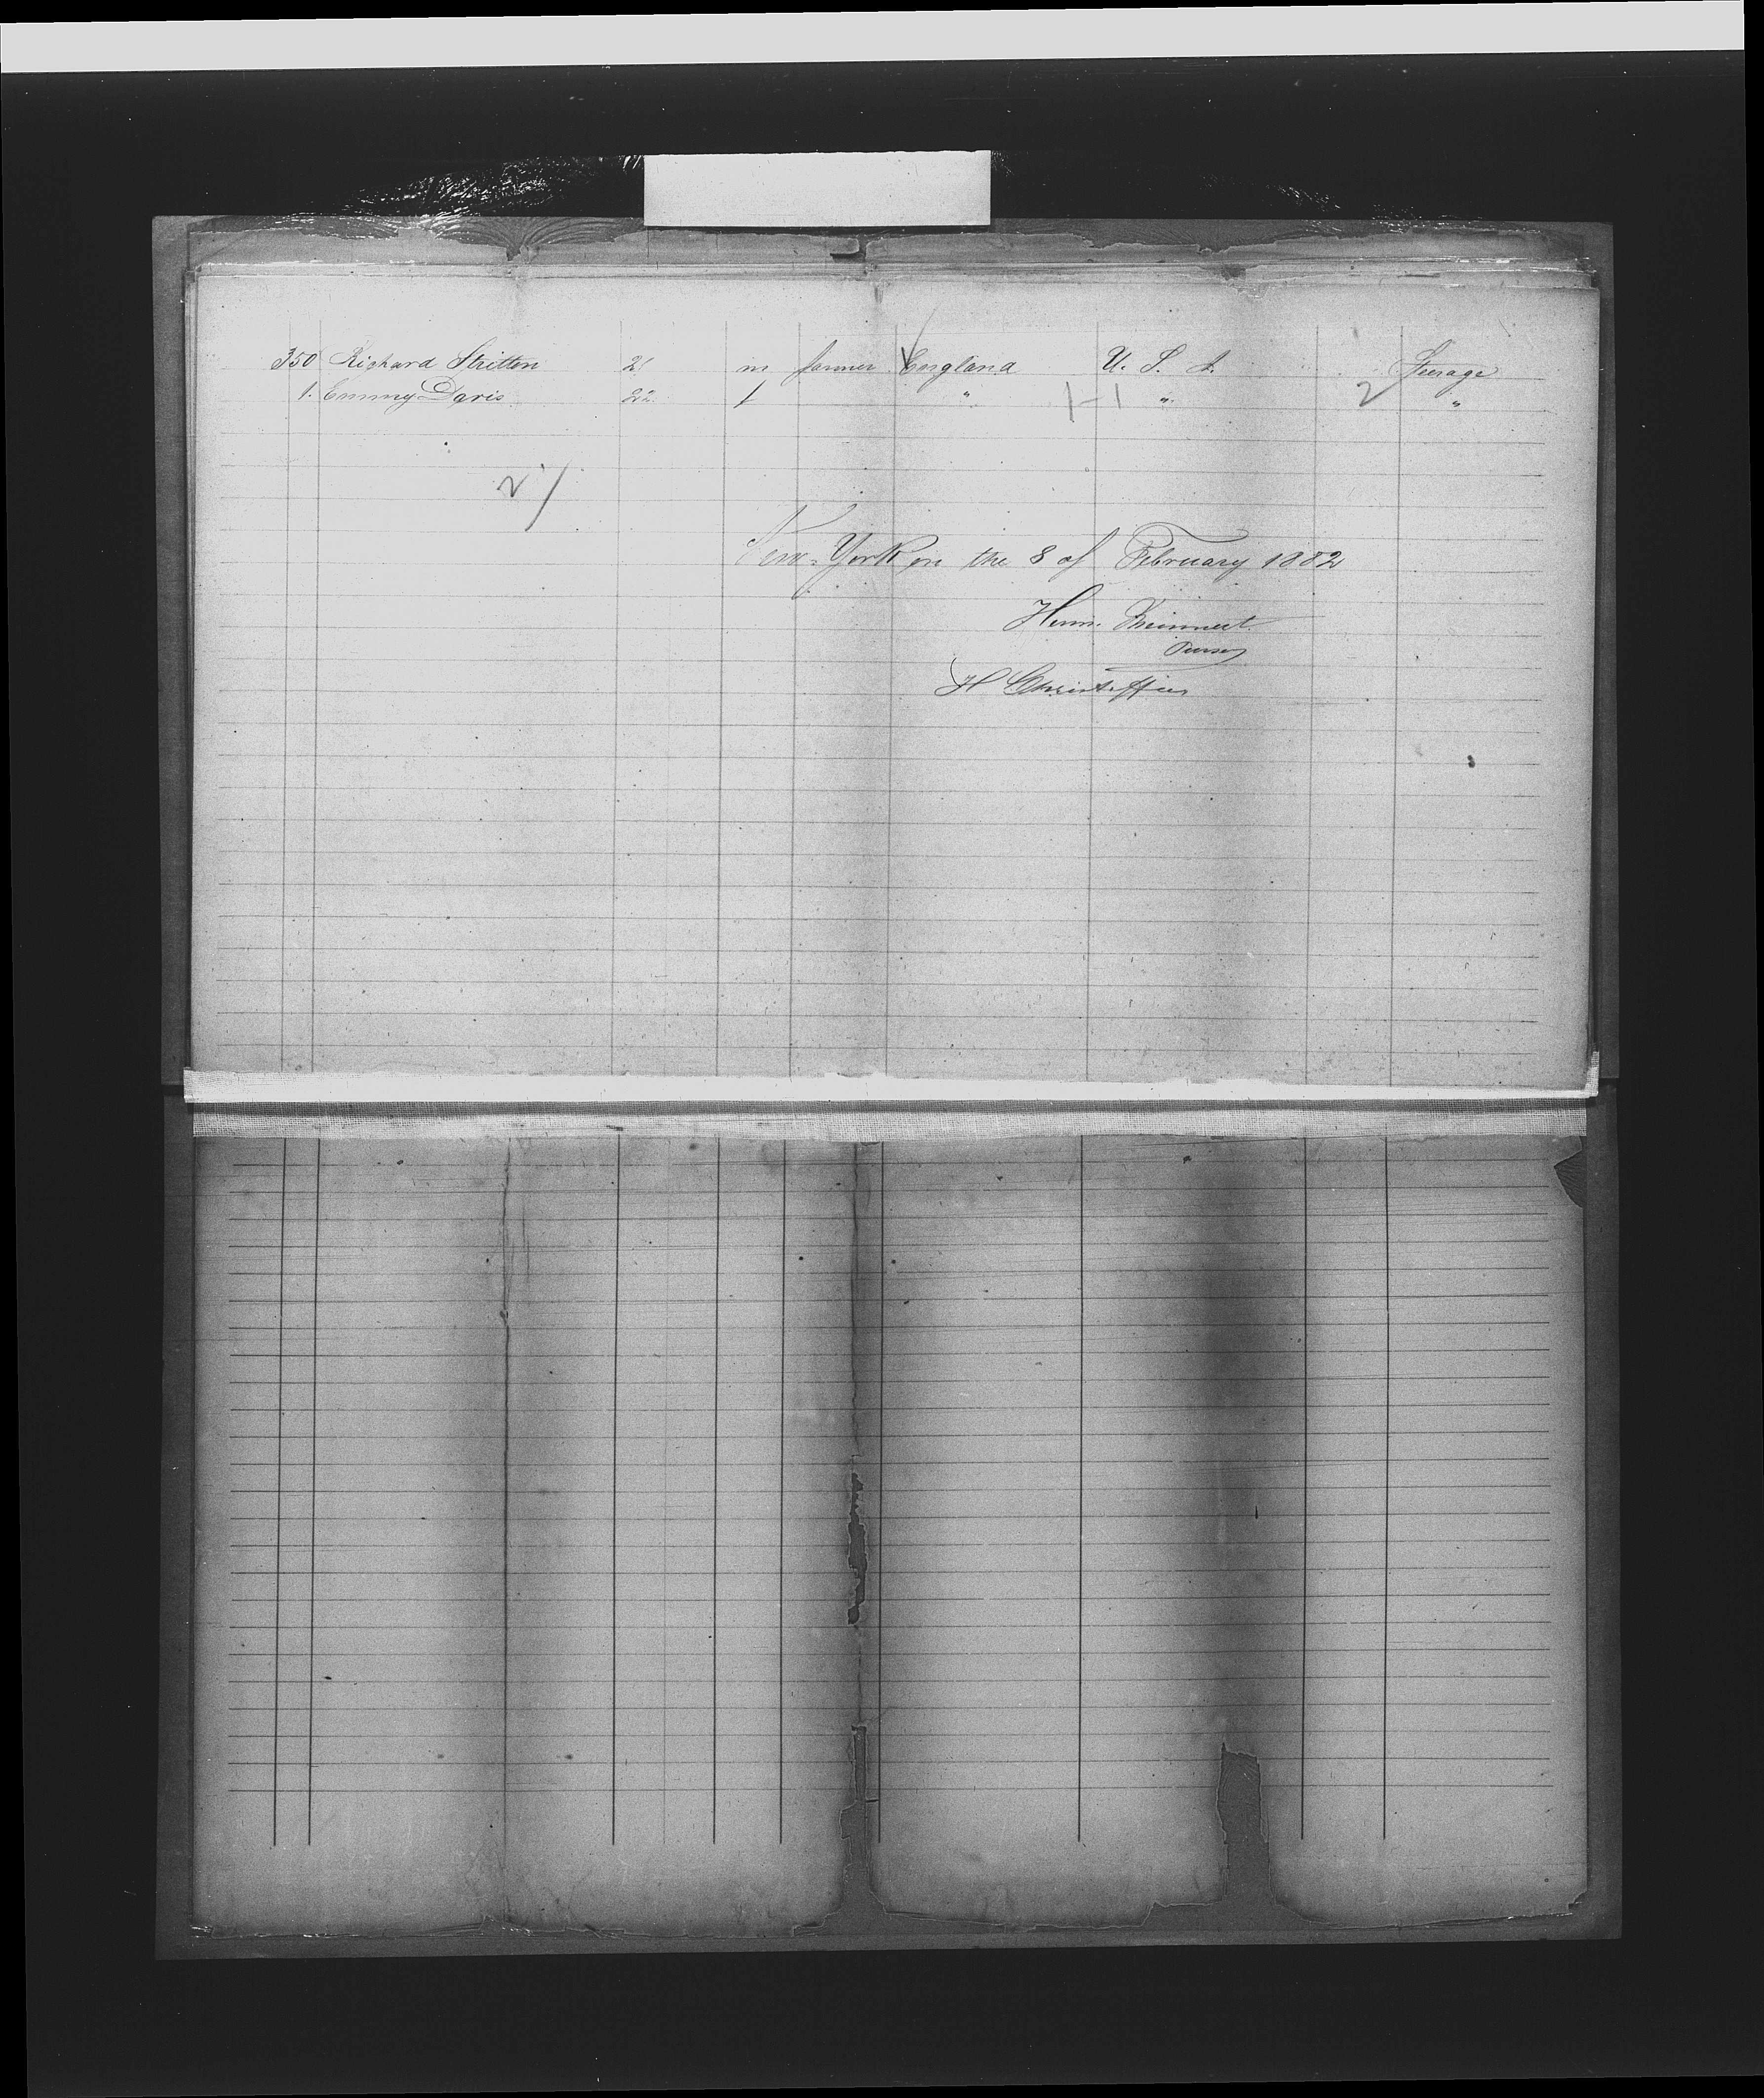 350 Richard Stritten 21 m farmer England U. S. A. Steerage
1. Emmy Davis 22 f " " 2 "
2
New-York on the 8 of February 1882
Herm.
Purser
H Christoffers